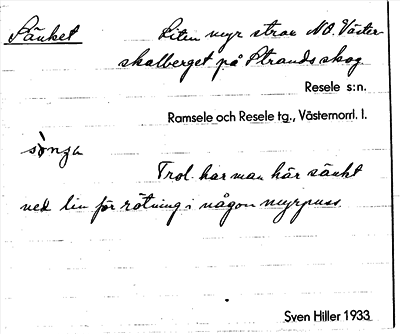 Sänket
Liten myr strax N.O. Väster-
skalberget på Strands skog.
Resele s:n.
Ramsele och Resele tg., Västernorrl. l.
sòŋga
Trol. har man här sänkt
ned lin för rötning i någon myrpuss.
Sven Hiller 1933